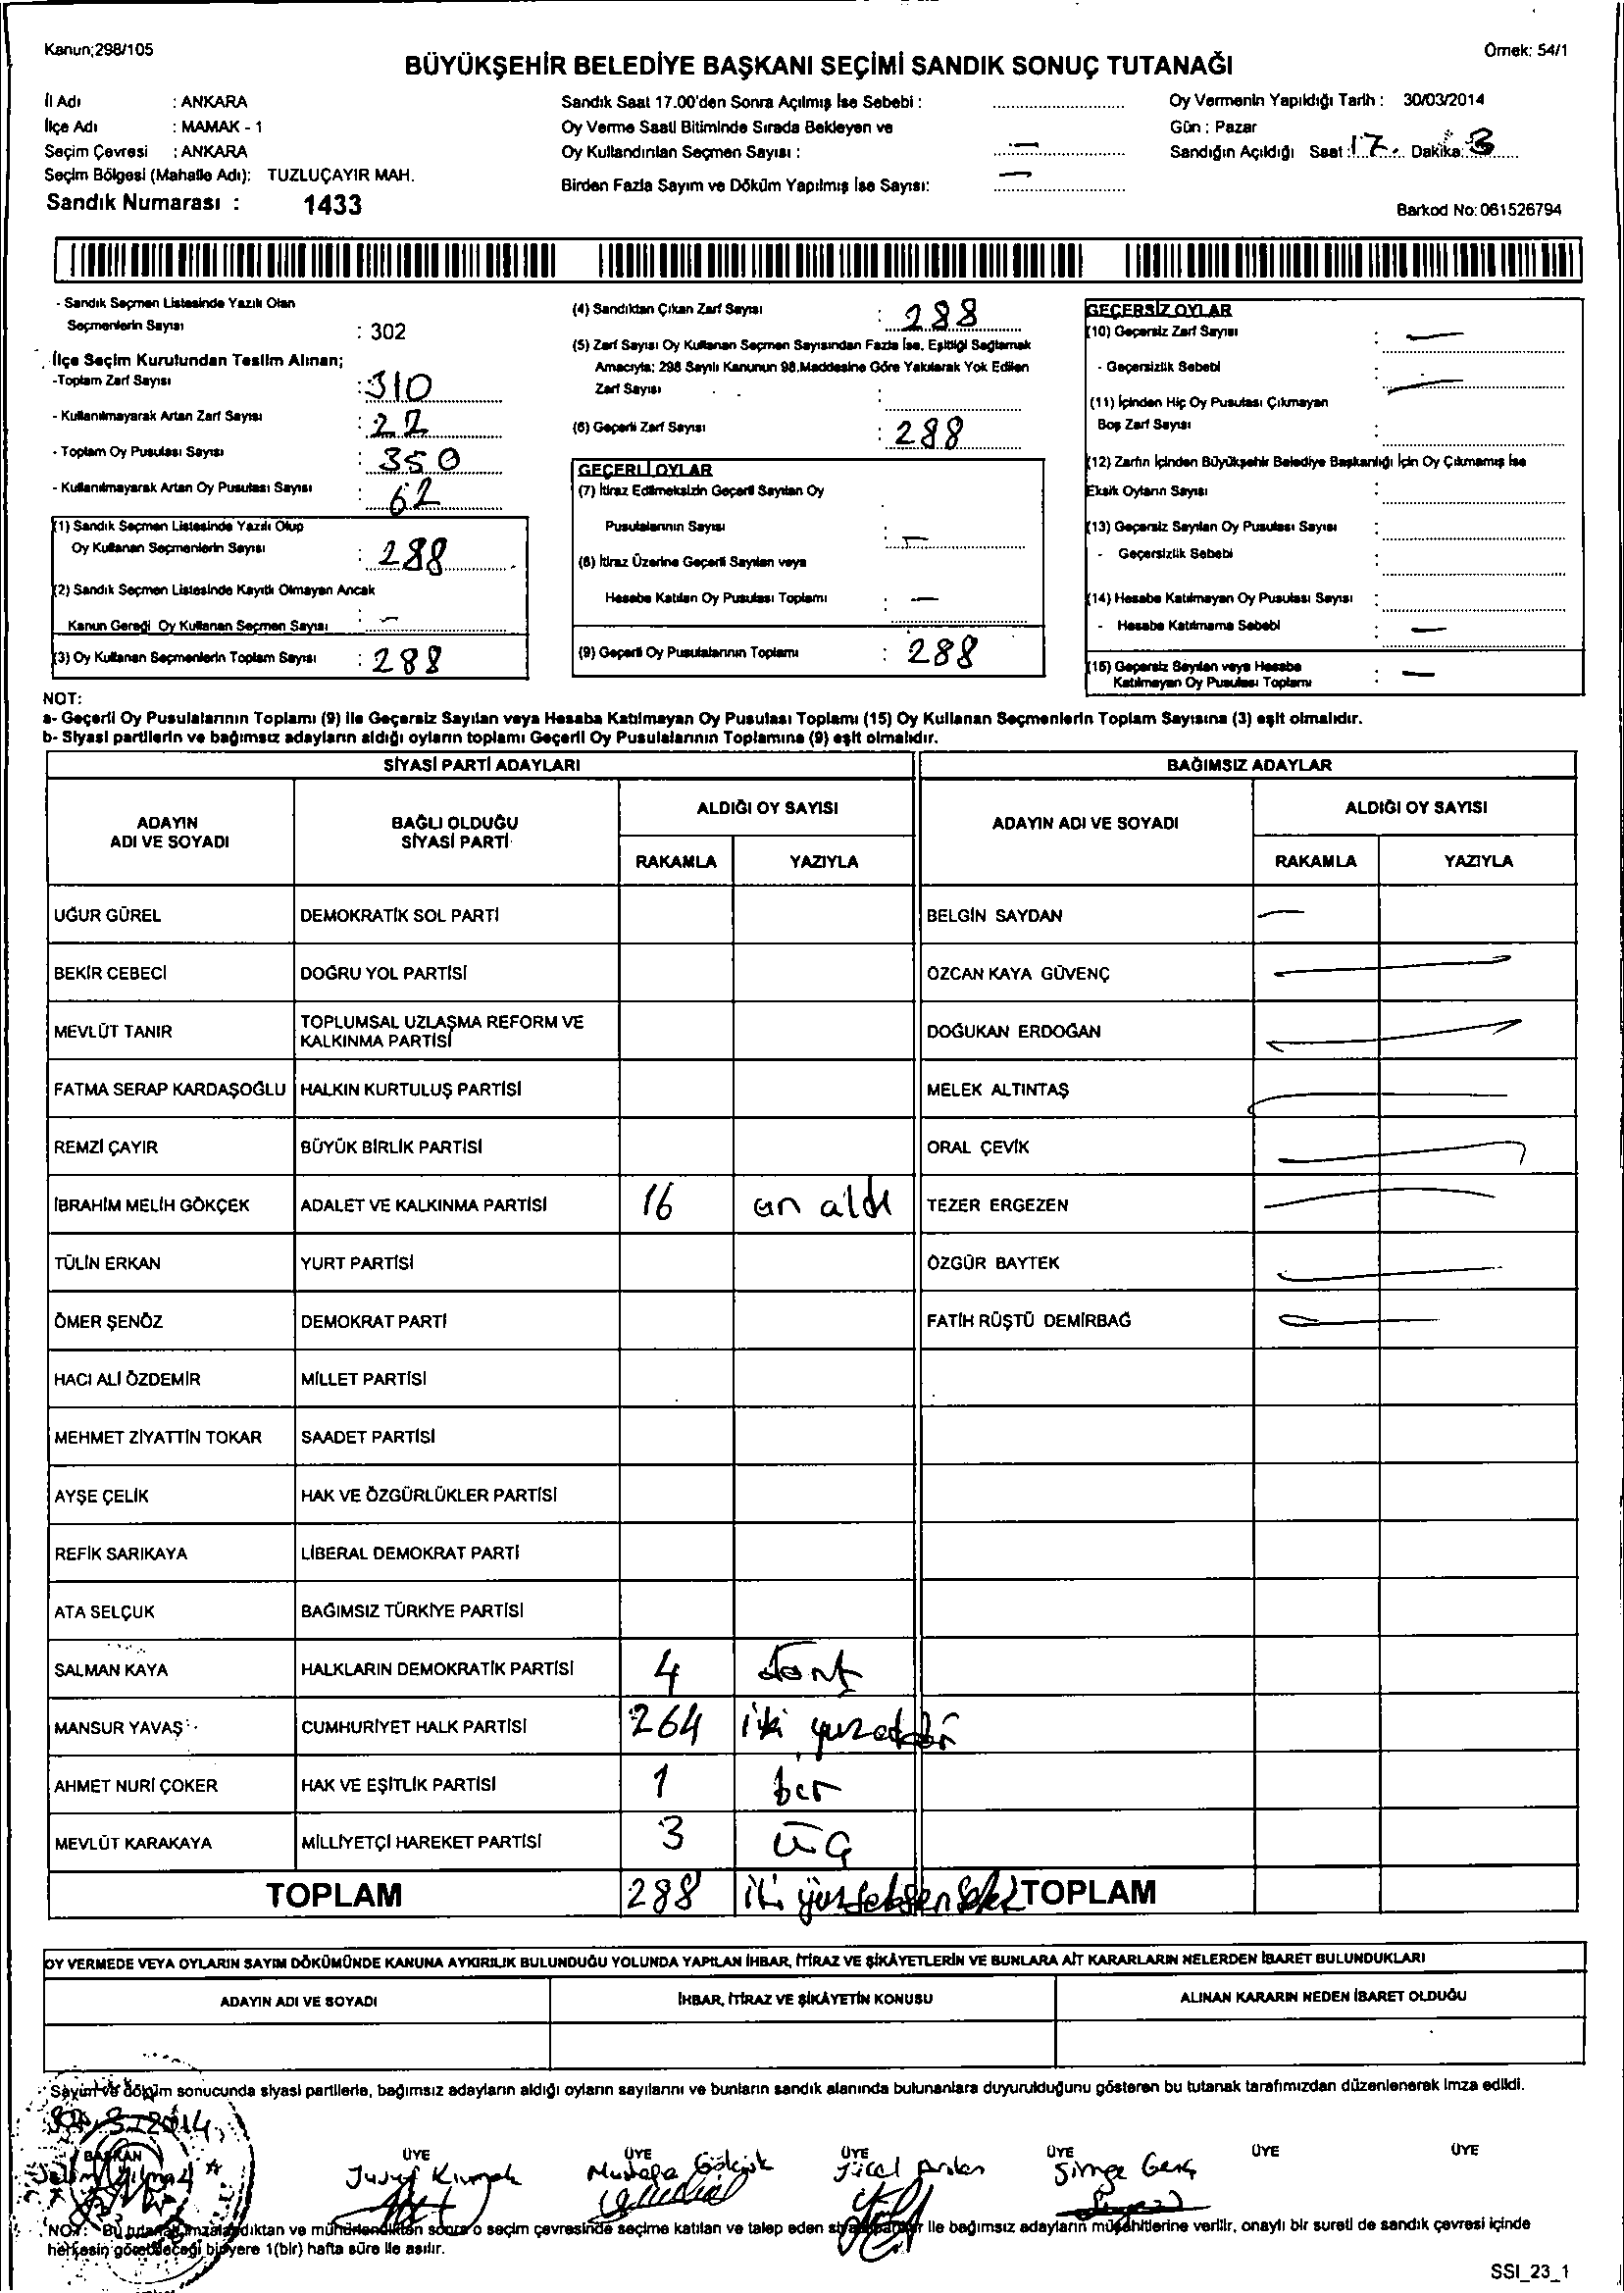 Kanun;298/105
Örnek: 54/1
BÜYÜKŞEHİR BELEDİYE BAŞKANI SEÇİMİ SANDIK SONUÇ TUTANAĞI
İl Adı : ANKARA
İlçe Adı : MAMAK - 1
Seçim Çevresi : ANKARA
Seçim Bölgesi (Mahalle Adı): TUZLUÇAYIR MAH.
Sandık Numarası : 1433
Sandık Saat 17.00'den Sonra Açılmış İse Sebebi :
Oy Verme Saati Bitiminde Sırada Bekleyen ve
Oy Kullandırılan Seçmen Sayısı : —
Birden Fazla Sayım ve Döküm Yapılmış İse Sayısı: —
Oy Vermenin Yapıldığı Tarih : 30/03/2014
Gün : Pazar
Sandığın Açıldığı Saat : 17. Dakika:
Barkod No: 061526794
- Sandık Seçmen Listesinde Yazılı Olan
Seçmenlerin Sayısı : 302
İlçe Seçim Kurulundan Teslim Alınan;
-Toplam Zarf Sayısı : 310
- Kullanılmayarak Artan Zarf Sayısı : 22
- Toplam Oy Pusulası Sayısı : 350
- Kullanılmayarak Artan Oy Pusulası Sayısı : 62
(1) Sandık Seçmen Listesinde Yazılı Olup
Oy Kullanan Seçmenlerin Sayısı : 288
(2) Sandık Seçmen Listesinde Kayıtlı Olmayan Ancak
Kanun Gereği Oy Kullanan Seçmen Sayısı : —
(3) Oy Kullanan Seçmenlerin Toplam Sayısı : 288
(4) Sandıktan Çıkan Zarf Sayısı : 288
(5) Zarf Sayısı Oy Kullanan Seçmen Sayısından Fazla İse, Eşitliği Sağlamak
Amacıyla; 298 Sayılı Kanunun 98.Maddesine Göre Yakılarak Yok Edilen
Zarf Sayısı :
(6) Geçerli Zarf Sayısı : 288
GEÇERLİ OYLAR
(7) İtiraz Edilmeksizin Geçerli Sayılan Oy
Pusulalarının Sayısı : —
(8) İtiraz Üzerine Geçerli Sayılan veya
Hesaba Katılan Oy Pusulası Toplamı : —
(9) Geçerli Oy Pusulalarının Toplamı : 288
GEÇERSİZ OYLAR
(10) Geçersiz Zarf Sayısı : —
- Geçersizlik Sebebi : —
(11) İçinden Hiç Oy Pusulası Çıkmayan
Boş Zarf Sayısı :
(12) Zarfın İçinden Büyükşehir Belediye Başkanlığı İçin Oy Çıkmamış İse
Eksik Oyların Sayısı :
(13) Geçersiz Sayılan Oy Pusulası Sayısı :
- Geçersizlik Sebebi :
(14) Hesaba Katılmayan Oy Pusulası Sayısı :
- Hesaba Katılmama Sebebi : —
(15) Geçersiz Sayılan veya Hesaba
Katılmayan Oy Pusulası Toplamı : —
NOT:
a- Geçerli Oy Pusulalarının Toplamı (9) ile Geçersiz Sayılan veya Hesaba Katılmayan Oy Pusulası Toplamı (15) Oy Kullanan Seçmenlerin Toplam Sayısına (3) eşit olmalıdır.
b- Siyasi partilerin ve bağımsız adayların aldığı oyların toplamı Geçerli Oy Pusulalarının Toplamına (9) eşit olmalıdır.
SİYASİ PARTİ ADAYLARI
BAĞIMSIZ ADAYLAR
ADAYIN ADI VE SOYADI
BAĞLI OLDUĞU SİYASİ PARTİ
ALDIĞI OY SAYISI
RAKAMLA YAZIYLA
ADAYIN ADI VE SOYADI
ALDIĞI OY SAYISI
RAKAMLA YAZIYLA
UĞUR GÜREL DEMOKRATİK SOL PARTİ BELGİN SAYDAN —
BEKİR CEBECİ DOĞRU YOL PARTİSİ ÖZCAN KAYA GÜVENÇ —
MEVLÜT TANIR TOPLUMSAL UZLAŞMA REFORM VE KALKINMA PARTİSİ DOĞUKAN ERDOĞAN —
FATMA SERAP KARDAŞOĞLU HALKIN KURTULUŞ PARTİSİ MELEK ALTINTAŞ —
REMZİ ÇAYIR BÜYÜK BİRLİK PARTİSİ ORAL ÇEVİK —
İBRAHİM MELİH GÖKÇEK ADALET VE KALKINMA PARTİSİ 16 on altı TEZER ERGEZEN —
TÜLİN ERKAN YURT PARTİSİ ÖZGÜR BAYTEK —
ÖMER ŞENÖZ DEMOKRAT PARTİ FATİH RÜŞTÜ DEMİRBAĞ —
HACI ALİ ÖZDEMİR MİLLET PARTİSİ
MEHMET ZİYATTİN TOKAR SAADET PARTİSİ
AYŞE ÇELİK HAK VE ÖZGÜRLÜKLER PARTİSİ
REFİK SARIKAYA LİBERAL DEMOKRAT PARTİ
ATA SELÇUK BAĞIMSIZ TÜRKİYE PARTİSİ
SALMAN KAYA HALKLARIN DEMOKRATİK PARTİSİ 4 dört
MANSUR YAVAŞ CUMHURİYET HALK PARTİSİ 264 iki
AHMET NURİ ÇOKER HAK VE EŞİTLİK PARTİSİ 1 bir
MEVLÜT KARAKAYA MİLLİYETÇİ HAREKET PARTİSİ 3 üç
TOPLAM 288 iki yüzseksensekiz TOPLAM
OY VERMEDE VEYA OYLARIN SAYIM DÖKÜMÜNDE KANUNA AYKIRILIK BULUNDUĞU YOLUNDA YAPILAN İHBAR, İTİRAZ VE ŞİKÂYETLERİN VE BUNLARA AİT KARARLARIN NELERDEN İBARET BULUNDUKLARI
ADAYIN ADI VE SOYADI İHBAR, İTİRAZ VE ŞİKÂYETİN KONUSU ALINAN KARARIN NEDEN İBARET OLDUĞU
Sayım ve döküm sonucunda siyasi partilerle, bağımsız adayların aldığı oyların sayılarını ve bunların sandık alanında bulunanlara duyurulduğunu gösteren bu tutanak tarafımızdan düzenlenerek imza edildi.
BAŞKAN ÜYE ÜYE ÜYE ÜYE ÜYE ÜYE
Yusuf Mustafa Gökçek Yücel Arslan Simge Genç
NOT: Bu tutanak imzalandıktan ve mühürlendikten sonra o seçim çevresinde seçime katılan ve talep eden siyasi partiler ile bağımsız adayların müşahitlerine verilir, onaylı bir sureti de sandık çevresi içinde
herkesin görebileceği bir yere 1(bir) hafta süre ile asılır.
SSI_23_1